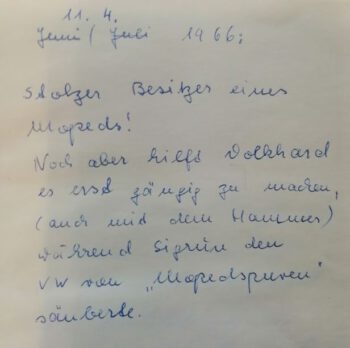 11. 4.
Juni/Juli 1966:
Stolzer Besitzer eines
Mopeds!
Noch aber hilft Volkhard
es erst gängig zu machen,
(auch mit dem Hammer)
während Sigrun den
VW von „Mopedspuren"
säuberte.